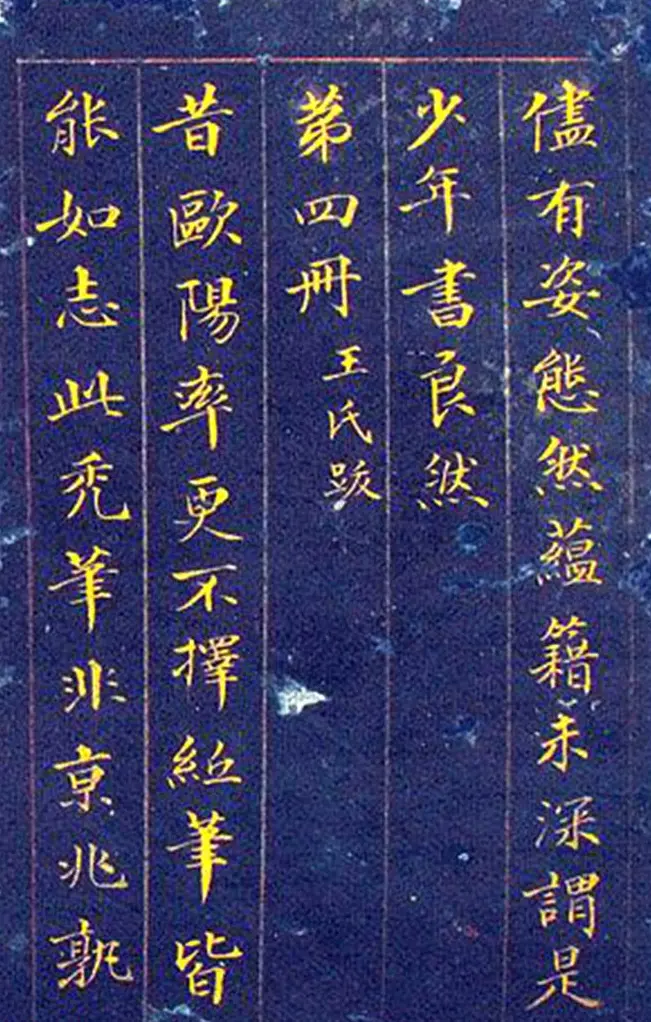 儘有姿態然蘊籍未深謂是
少年書良然
第四冊 王氏跋
昔歐陽率更不擇紙筆皆
能如志此禿筆非京兆孰